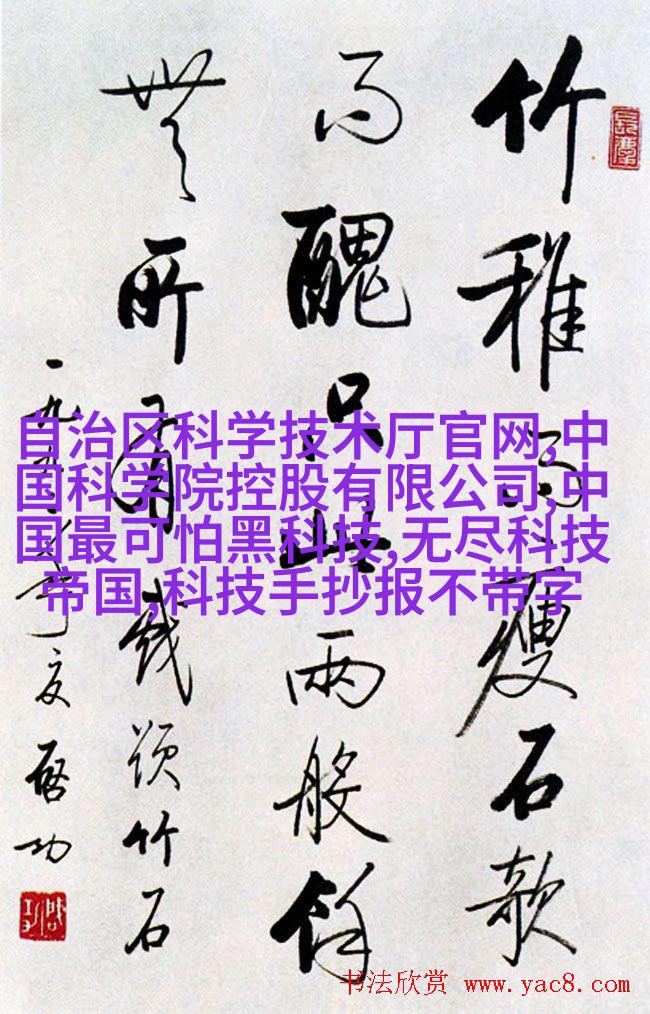 竹稚而瘦石欹
而醜只此兩般餘
無所有戲題竹石
夏啓功
自治区科学技术厅官网,中
国科学院控股有限公司,中
国最可怕黑科技,无尽科技
帝国,科技手抄报不带字
书法欣赏 www.yac8.com